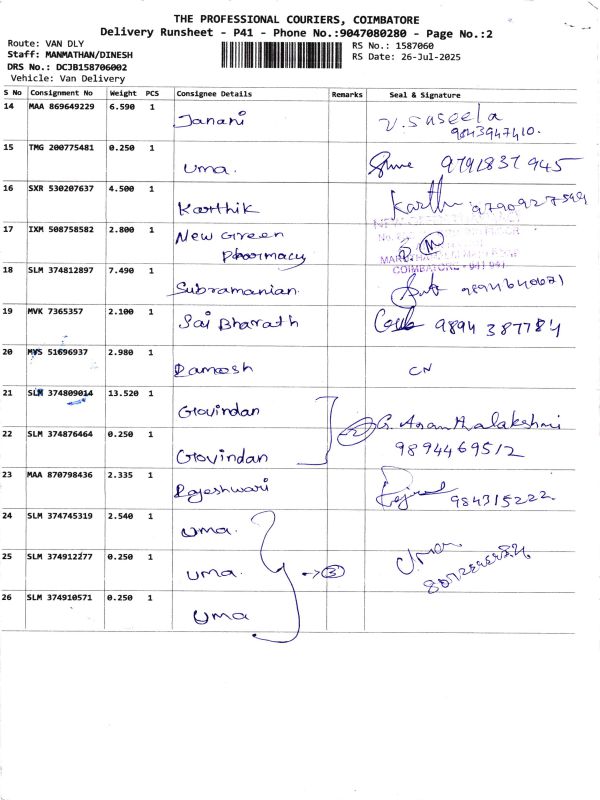 THE PROFESSIONAL COURIERS, COIMBATORE
Delivery Runsheet - P41 - Phone No.:9047080280 - Page No.:2
Route: VAN DLY RS No.: 1587060
Staff: MANMATHAN/DINESH RS Date: 26-Jul-2025
DRS No.: DCJB158706002
Vehicle: Van Delivery
S No Consignment No Weight PCS Consignee Details Remarks Seal & Signature
14 MAA 869649229 6.590 1 Janani V. Saseela
9843947410.
15 TMG 200775481 0.250 1 Uma. 9791837945
16 SXR 530207637 4.500 1 Karthik Karthi 9790927599
17 IXM 508758582 2.800 1 New Green
Pharmacy
COIMBATORE - 641 041
18 SLM 374812897 7.490 1 Subramanian
19 MVK 7365357 2.100 1 Sai Bharath 9894387784
20 MVS 51696937 2.980 1 Ramesh CN
21 SLM 374809014 13.520 1 Govindan G. Ananthalakshmi
22 SLM 374876464 0.250 1 Govindan 2 9894469512
23 MAA 870798436 2.335 1 Rajeshwari 984315222
24 SLM 374745319 2.540 1 Uma.
25 SLM 374912277 0.250 1 Uma. → 3 Uma
26 SLM 374910571 0.250 1 Uma